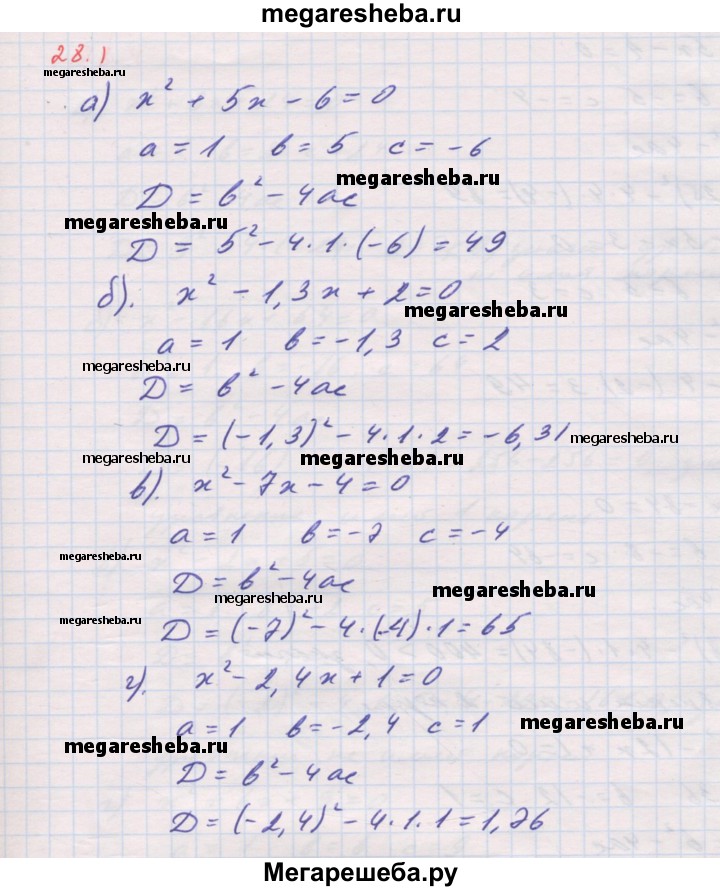 megaresheba.ru
28.1
megaresheba.ru
а) x² + 5x - 6 = 0
a = 1 в = 5 c = -6
megaresheba.ru
D = в² - 4ac
megaresheba.ru
D = 5² - 4·1·(-6) = 49
б). x² - 1,3x + 2 = 0
megaresheba.ru
a = 1 в = -1,3 c = 2
megaresheba.ru
D = в² - 4ac
D = (-1,3)² - 4·1·2 = -6,31
megaresheba.ru
megaresheba.ru
megaresheba.ru
в). x² - 7x - 4 = 0
a = 1 в = -7 c = -4
megaresheba.ru
D = в² - 4ac
megaresheba.ru
megaresheba.ru
megaresheba.ru
D = (-7)² - 4·(-4)·1 = 65
г). x² - 2,4x + 1 = 0
a = 1 в = -2,4 c = 1
megaresheba.ru
megaresheba.ru
D = в² - 4ac
D = (-2,4)² - 4·1·1 = 1,76
Мегарешеба.ру